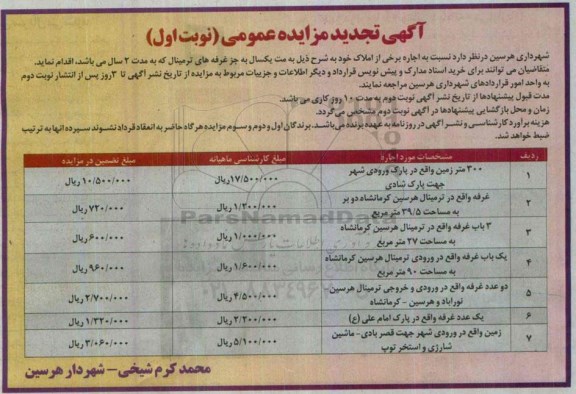 آگهی تجدید مزایده عمومی (نوبت اول)
شهرداری هرسین درنظر دارد نسبت به اجاره برخی از املاک خود به شرح ذیل به مت یکسال به جز غرفه های ترمینال که به مدت ۲ سال می باشد، اقدام نماید.
متقاضیان می توانند برای خرید اسناد مدارک و پیش نویس قرارداد و دیگر اطلاعات و جزییات مربوط به مزایده از تاریخ نشر آگهی تا ۳روز پس از انتشار نوبت دوم
به واحد امور قراردادهای شهرداری هرسین مراجعه نمایند.
مدت قبول پیشنهادها از تاریخ نشر آگهی نوبت دوم به مدت ۱۰روز کاری می باشد.
زمان و محل بازگشایی پیشنهادها در آگهی نوبت دوم مشخص می گردد.
هزینه برآورد کارشناسی و نشر آگهی در روزنامه به عهده برنده می‌باشد. برندگان اول و دوم و سوم مزایده هرگاه حاضر به انعقاد قرارداد نشوند سپرده آنها به ترتیب
ضبط خواهد شد.
ردیف مشخصات مورد اجاره مبلغ کارشناسی ماهیانه مبلغ تضمین در مزایده
۱ ۳۰۰ متر زمین واقع در پارک ورودی شهر جهت پارک شادی ۱۷/۵۰۰/۰۰۰ریال ۱۰/۵۰۰/۰۰۰ ریال
۲ غرفه واقع در ترمینال هرسین کرمانشاه دو بر به مساحت ۳۹/۵ متر مربع ۱/۲۰۰/۰۰۰ ریال ۷۲۰/۰۰۰ ریال
۳ ۳ باب غرفه واقع در ترمینال هرسین کرمانشاه به مساحت ۲۷ متر مربع ۱/۰۰۰/۰۰۰ ریال ۶۰۰/۰۰۰ ریال
۴ یک باب غرفه واقع در ورودی ترمینال هرسین کرمانشاه به مساحت ۹۰ متر مربع ۱/۶۰۰/۰۰۰ ریال ۹۶۰/۰۰۰ ریال
۵ دو عدد غرفه واقع در ورودی و خروجی ترمینال هرسین- نورآباد و هرسین - کرمانشاه ۴/۵۰۰/۰۰۰ ریال ۲/۷۰۰/۰۰۰ ریال
۶ یک عدد غرفه واقع در پارک امام علی (ع) ۲/۲۰۰/۰۰۰ ریال ۱/۳۲۰/۰۰۰ ریال
۷ زمین واقع در ورودی شهر جهت قصر بادی- ماشین شارژی و استخر توپ ۵/۱۰۰/۰۰۰ ریال ۳/۰۶۰/۰۰۰ ریال
محمد کرم شیخی - شهردار هرسین
ParsNamadData